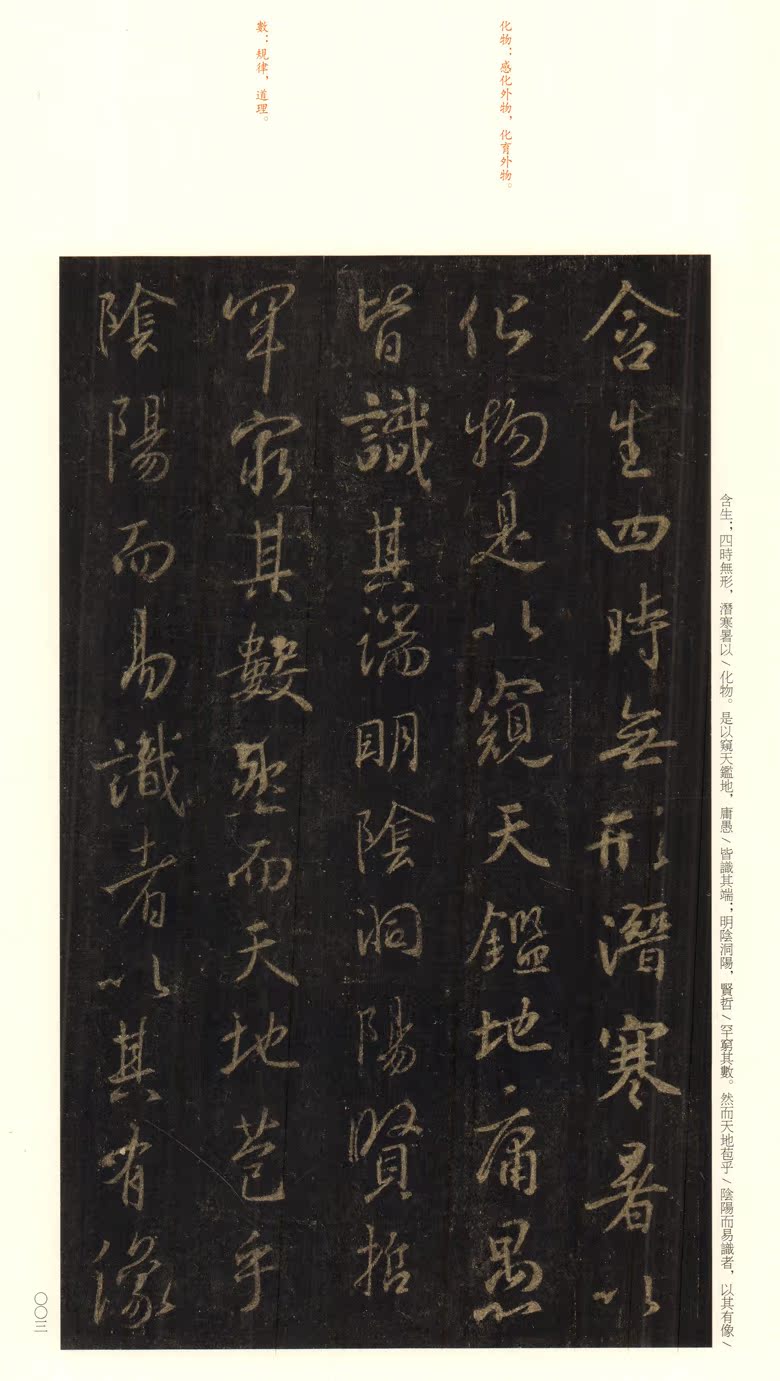 化物：感化外物，化育外物。
數：規律，道理。
含生四時無形潛寒暑以
化物是以窺天鑑地庸愚
皆識其端明陰洞陽賢哲
罕窮其數然而天地苞乎
陰陽而易識者以其有像
含生；四時無形，潛寒暑以\化物。是以窺天鑑地，庸愚\皆識其端；明陰洞陽，賢哲\罕窮其數。然而天地苞乎\陰陽而易識者，以其有像\
〇〇三